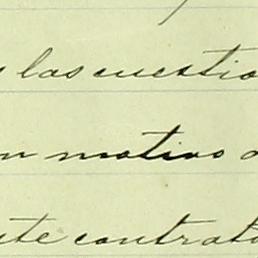 las cuestio
motivo
te contrato